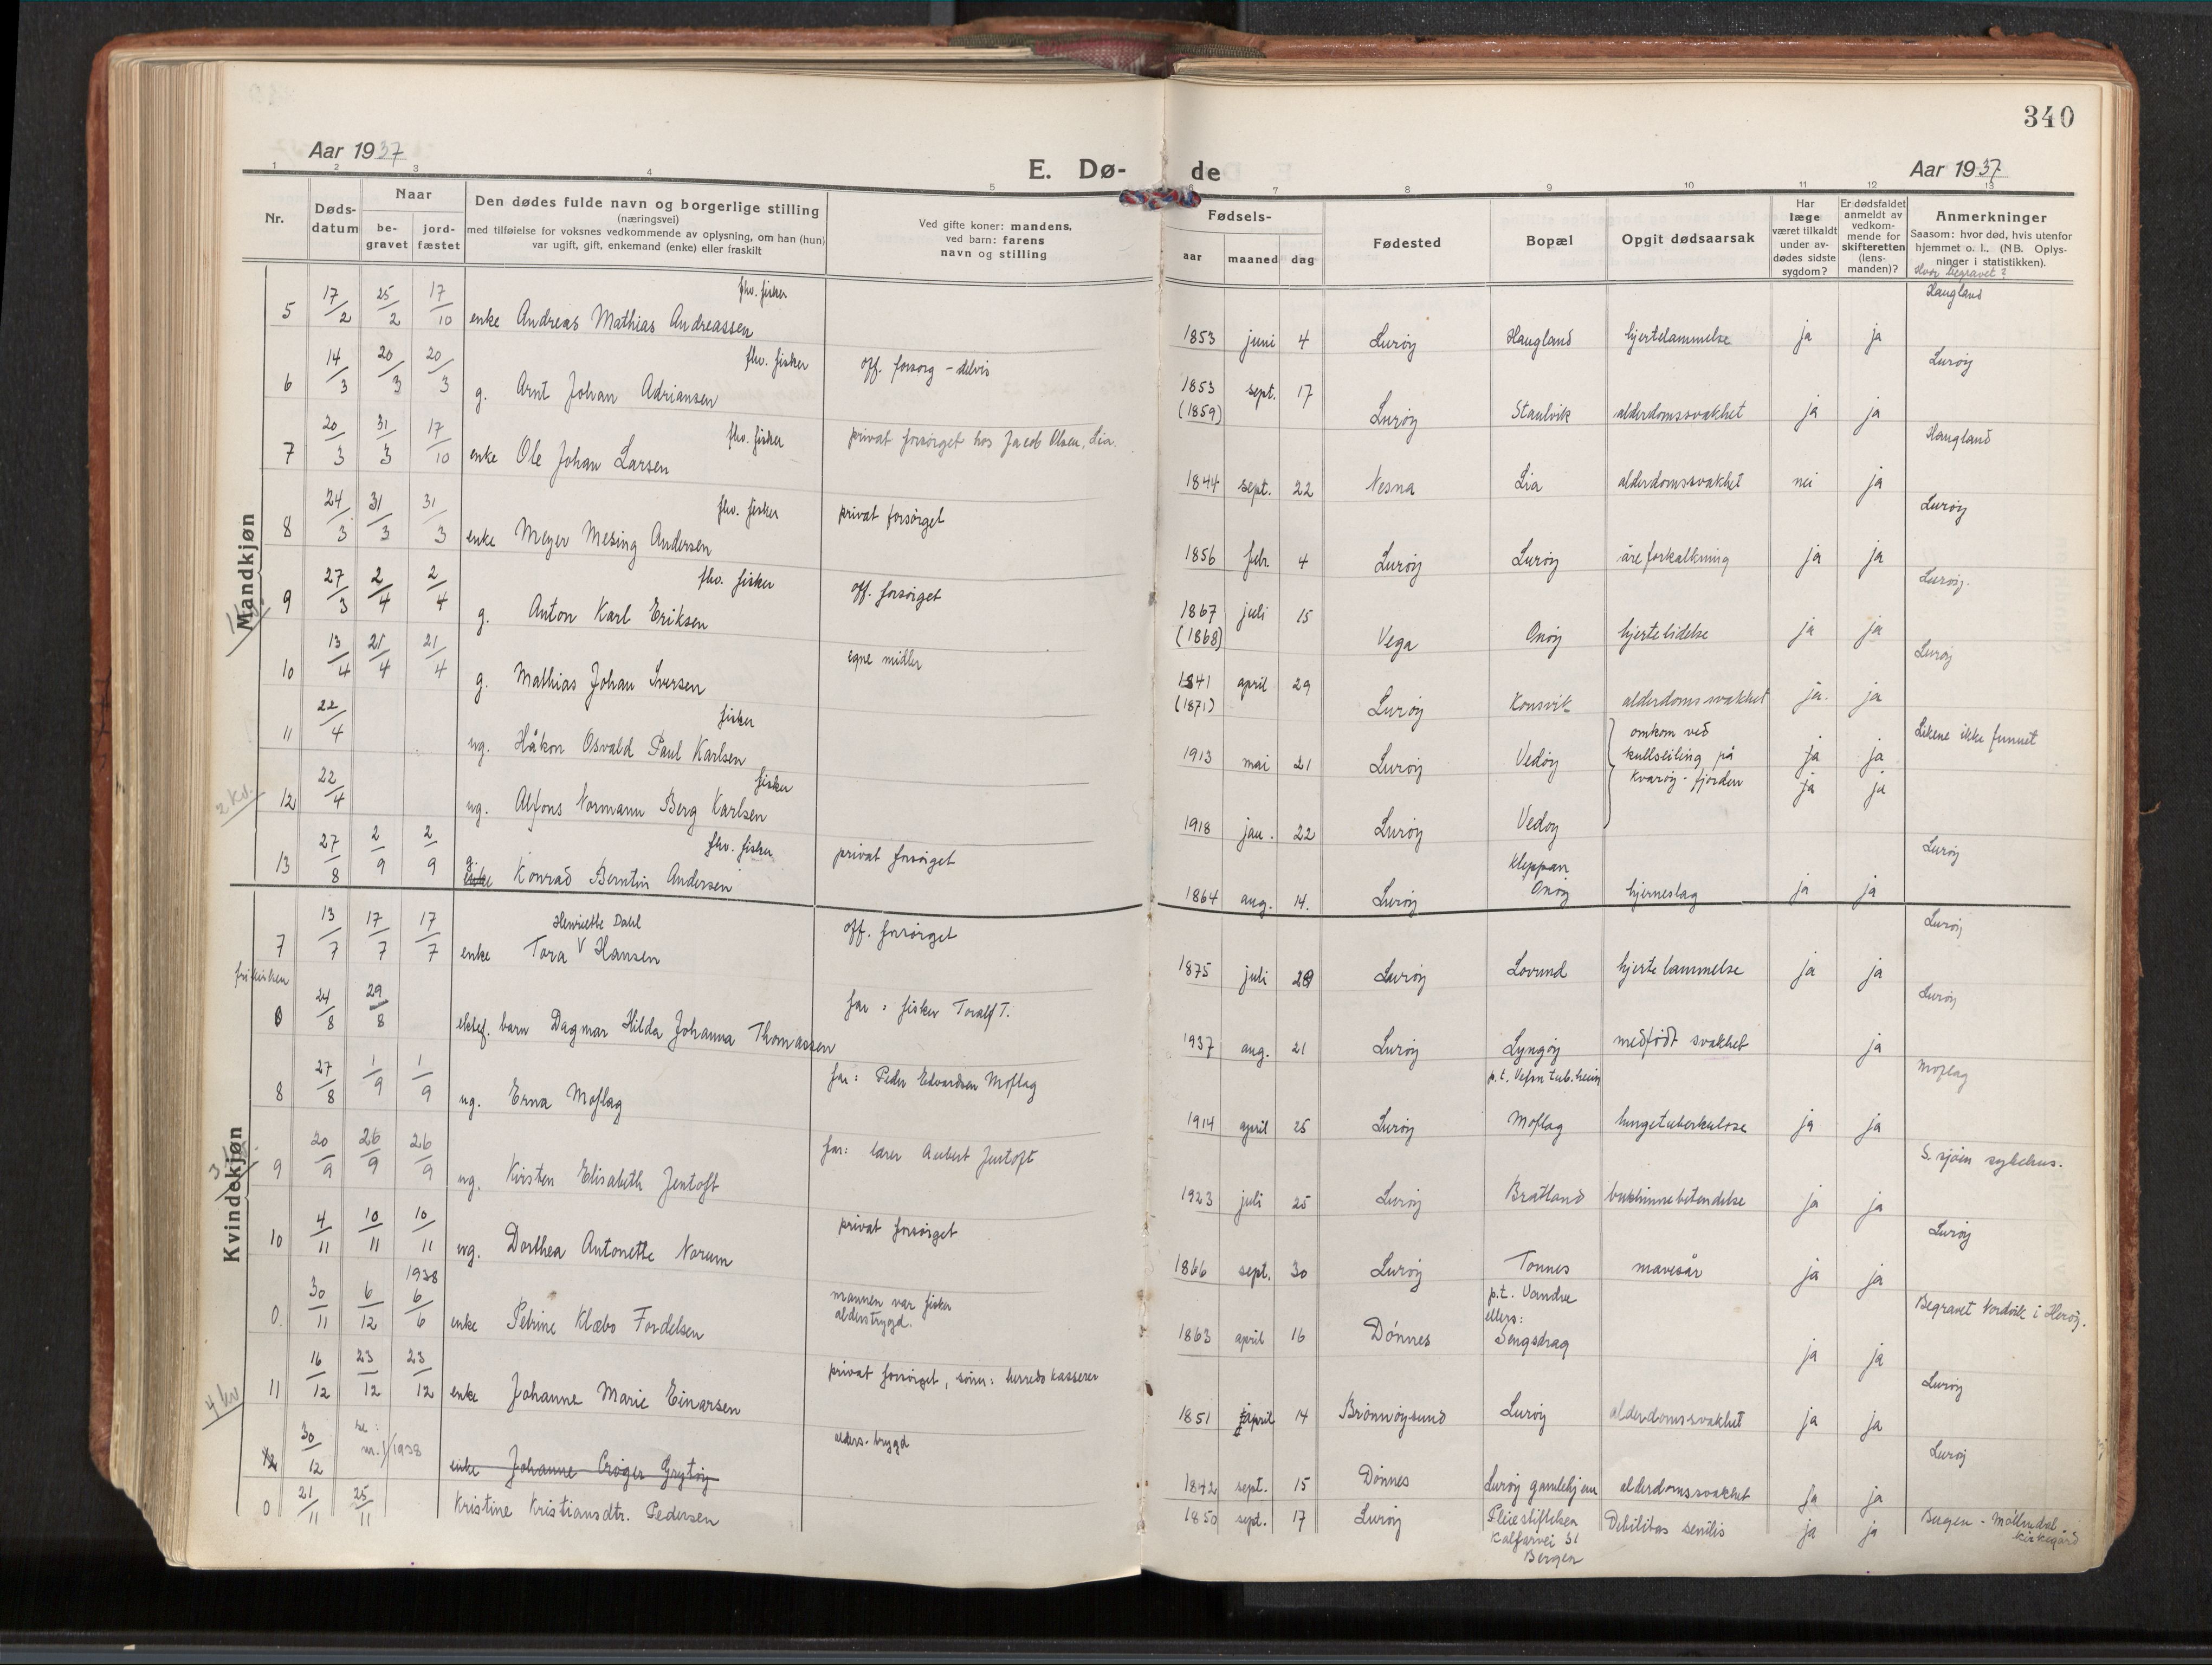 340
Aar 1937
E. Dø-
de
Aar 1937
1 2 3 4 5 6 7 8 9 10 11 12 13
Nr.
Døds-
datum
Naar
be-
gravet
jord-
fæstet
Den dødes fulde navn og borgerlige stilling
(næringsvei)
med tilføielse for voksnes vedkommende av oplysning, om han (hun)
var ugift, gift, enkemand (enke) eller fraskilt
Ved gifte koner: mandens,
ved barn: farens
navn og stilling
Fødsels-
aar maaned dag
Fødested
Bopæl
Opgit dødsaarsak
Har
læge
været tilkaldt
under av-
dødes sidste
sygdom?
Er dødsfaldet
anmeldt av
vedkom-
mende for
skifteretten
(lens-
manden)?
Anmerkninger
Saasom: hvor død, hvis utenfor
hjemmet o. l. (NB. Oplys-
ninger i statistikken).
Hvor begravet?
Mandkjøn
5 17/2 25/2 17/10 enke Andreas Mathias Andreassen fhv. fisker 1853 juni 4 Lurøy Haugland hjertelammelse ja ja Haugland
6 14/3 20/3 20/3 g. Arnt Johan Adriansen fhv. fisker off. forsorg - delvis 1853 (1859) sept. 17 Lurøy Staulvik alderdomssvakhet ja ja Lurøy
7 20/3 31/3 17/10 enke Ole Johan Larsen fhv. fisker privat forsørget hos Jacob Olsen, Lia. 1844 sept. 22 Nesna Lia alderdomssvakhet nei ja Haugland
8 24/3 31/3 31/3 enke Meyer Mesing Andersen fhv. fisker privat forsørget 1856 febr. 4 Lurøy Lurøy åreforkalkning ja ja Lurøy
9 27/3 2/4 2/4 g. Anton Karl Eriksen fhv. fisker off. forsørget 1867 (1868) juli 15 Vega Onøy hjertelidelse ja ja Lurøy.
10 13/4 21/4 21/4 g. Mathias Johan Iversen egne midler 1841 (1871) april 29 Lurøy Konsvik alderdomssvakhet ja. ja Lurøy
11 22/4 ug. Håkon Osvald Paul Karlsen fisker 1913 mai 21 Lurøy Vedøy omkom ved kullseiling på Kvarøy-fjorden ja ja Likene ikke funnet
12 22/4 ug. Alfons Normann Berg Karlsen fisker 1918 jan. 22 Lurøy Vedøy ja ja
2 kv.
13 27/8 2/9 2/9 enke g. Konrad Berntin Andersen fhv. fisker privat forsørget 1864 aug. 14. Lurøy Kleppan Onøy hjerneslag ja ja Lurøy
Kvindekjøn
7 13/7 17/7 17/7 enke Tora V Hansen Henriette Dahl off. forsørget 1875 juli 28 Lurøy Lovund hjertelammelse ja ja Lurøy
frikirken
0 24/8 29/8 ektef. barn Dagmar Hilda Johanna Thomassen far: fisker Toralf T. 1937 aug. 21 Lurøy Lyngøy medfødt svakhet ja Lurøy
8 27/8 1/9 1/9 ug. Erna Moflag far: Peder Edvardsen Moflag 1914 april 25 Lurøy p.t. Vefsn tub.heim Moflag lungetuberkulose ja ja Moflag
9 20/9 26/9 26/9 ug. Kirsten Elisabeth Jentoft far: lærer Aubert Jentoft 1923 juli 25 Lurøy Bratland bukhinnebetendelse ja ja S.sjøen sykehus.
10 4/11 10/11 10/11 ug. Dorthea Antonette Norum privat forsørget 1866 sept. 30 Lurøy Tonnes mavesår ja ja Lurøy
0. 30/11 6/12 1938 6/6 enke Petrine Klæbo Fordelsen mannen var fisker alderstrygd. 1863 april 16 Dønnes p.t. Vandve ellers: Sengsdrag ja ja Begravet Nordvik i Herøy.
11 16/12 23/12 23/12 enke Johanne Marie Einarsen privat forsørget, sønn: herredskasserer 1851 april 14 Brønnøysund Lurøy alderdomssvakhet ja ja Lurøy
4 kv
12 30/12 se: nr. 1/1938 enke Johanne Crøger Grytøy alders-trygd 1842 sept. 15 Dønnes Lurøy gamlehjem alderdomssvakhet ja ja Lurøy
0 21/11 25/11 Kristine Kristiansdtr. Pedersen 1850 sept. 17 Lurøy Pleiestiftelsen Kalfarvei 31 Bergen Debilitas senilis ja ja Bergen - Møllendal kirkegård